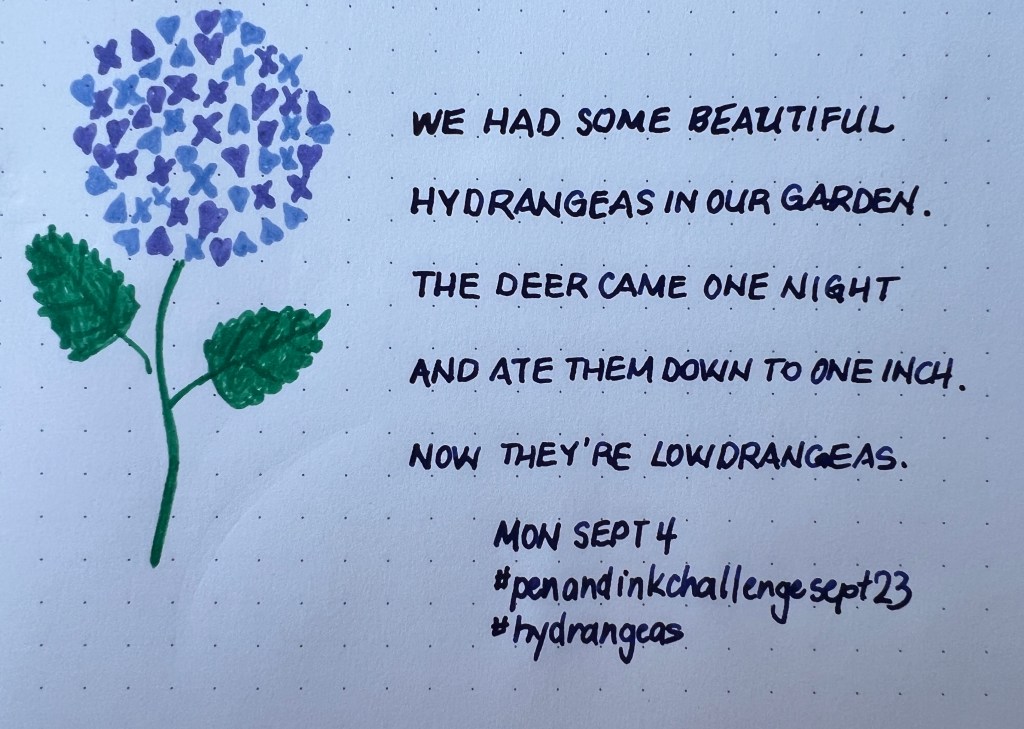 WE HAD SOME BEAUTIFUL
HYDRANGEAS IN OUR GARDEN.
THE DEER CAME ONE NIGHT
AND ATE THEM DOWN TO ONE INCH.
NOW THEY'RE LOWDRANGEAS.
MON SEPT 4
#penandinkchallengesept23
#hydrangeas